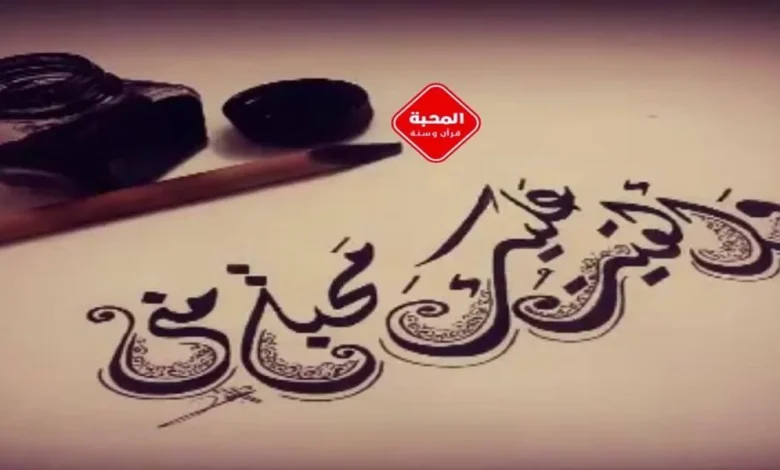 المحبة
قرآن وسنة
وألقيت عليك محبة مني